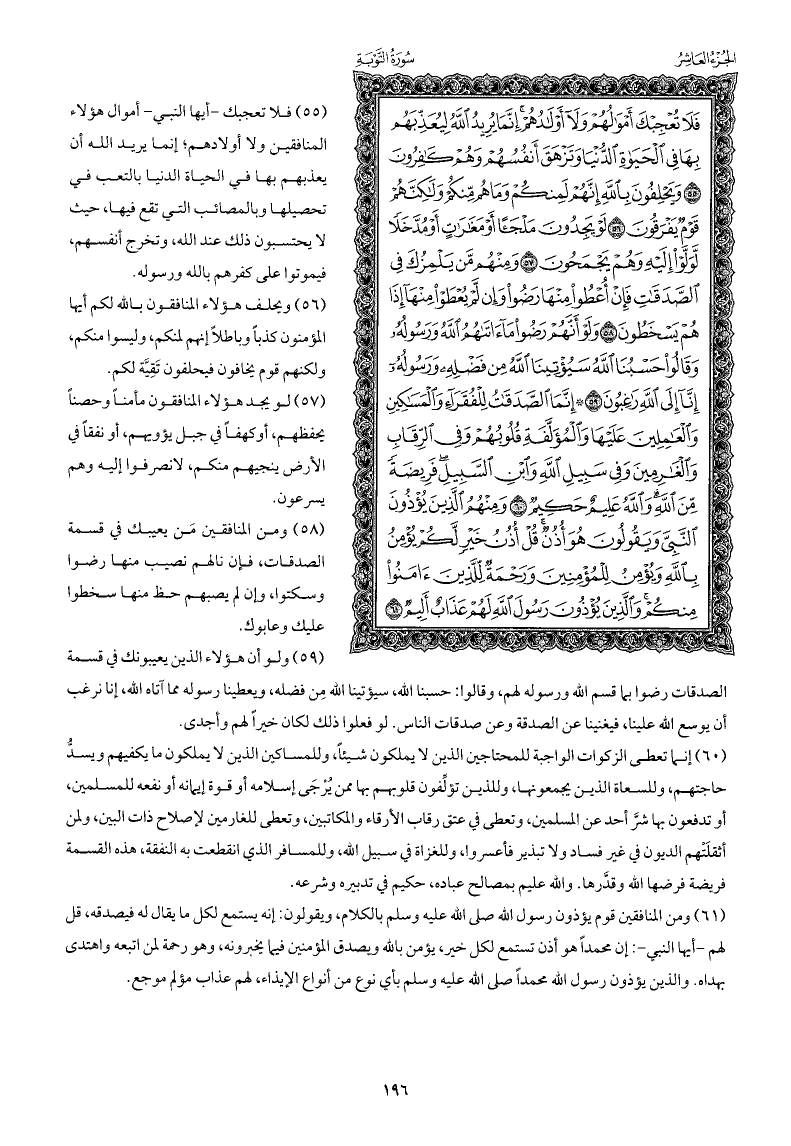 الجزء العاشر
سورة التوبة
فَلَا تُعْجِبْكَ أَمْوَٰلُهُمْ وَلَآ أَوْلَٰدُهُمْ ۚ إِنَّمَا يُرِيدُ ٱللَّهُ لِيُعَذِّبَهُم
بِهَا فِى ٱلْحَيَوٰةِ ٱلدُّنْيَا وَتَزْهَقَ أَنفُسُهُمْ وَهُمْ كَٰفِرُونَ
۝٥٥ وَيَحْلِفُونَ بِٱللَّهِ إِنَّهُمْ لَمِنكُمْ وَمَا هُم مِّنكُمْ وَلَٰكِنَّهُمْ
قَوْمٌ يَفْرَقُونَ ۝٥٦ لَوْ يَجِدُونَ مَلْجَـًٔا أَوْ مَغَٰرَٰتٍ أَوْ مُدَّخَلًا
لَّوَلَّوْا۟ إِلَيْهِ وَهُمْ يَجْمَحُونَ ۝٥٧ وَمِنْهُم مَّن يَلْمِزُكَ فِى
ٱلصَّدَقَٰتِ فَإِنْ أُعْطُوا۟ مِنْهَا رَضُوا۟ وَإِن لَّمْ يُعْطَوْا۟ مِنْهَآ إِذَا
هُمْ يَسْخَطُونَ ۝٥٨ وَلَوْ أَنَّهُمْ رَضُوا۟ مَآ ءَاتَىٰهُمُ ٱللَّهُ وَرَسُولُهُۥ
وَقَالُوا۟ حَسْبُنَا ٱللَّهُ سَيُؤْتِينَا ٱللَّهُ مِن فَضْلِهِۦ وَرَسُولُهُۥٓ
إِنَّآ إِلَى ٱللَّهِ رَٰغِبُونَ ۝٥٩ ۞ إِنَّمَا ٱلصَّدَقَٰتُ لِلْفُقَرَآءِ وَٱلْمَسَٰكِينِ
وَٱلْعَٰمِلِينَ عَلَيْهَا وَٱلْمُؤَلَّفَةِ قُلُوبُهُمْ وَفِى ٱلرِّقَابِ
وَٱلْغَٰرِمِينَ وَفِى سَبِيلِ ٱللَّهِ وَٱبْنِ ٱلسَّبِيلِ ۖ فَرِيضَةً
مِّنَ ٱللَّهِ ۗ وَٱللَّهُ عَلِيمٌ حَكِيمٌ ۝٦٠ وَمِنْهُمُ ٱلَّذِينَ يُؤْذُونَ
ٱلنَّبِىَّ وَيَقُولُونَ هُوَ أُذُنٌ ۚ قُلْ أُذُنُ خَيْرٍ لَّكُمْ يُؤْمِنُ
بِٱللَّهِ وَيُؤْمِنُ لِلْمُؤْمِنِينَ وَرَحْمَةٌ لِّلَّذِينَ ءَامَنُوا۟
مِنكُمْ ۚ وَٱلَّذِينَ يُؤْذُونَ رَسُولَ ٱللَّهِ لَهُمْ عَذَابٌ أَلِيمٌ ۝٦١
(٥٥) فلا تعجبك -أيها النبي- أموال هؤلاء
المنافقين ولا أولادهم؛ إنما يريد الله أن
يعذبهم بها في الحياة الدنيا بالتعب في
تحصيلها وبالمصائب التي تقع فيها، حيث
لا يحتسبون ذلك عند الله، وتخرج أنفسهم،
فيموتوا على كفرهم بالله ورسوله.
(٥٦) ويحلف هؤلاء المنافقون بالله لكم أيها
المؤمنون كذباً وباطلاً إنهم لمنكم، وليسوا منكم،
ولكنهم قوم يخافون فيحلفون تَقِيَّة لكم.
(٥٧) لو يجد هؤلاء المنافقون مأمناً وحصناً
يحفظهم، أو كهفاً في جبل يؤويهم، أو نفقاً في
الأرض ينجيهم منكم، لانصرفوا إليه وهم
يسرعون.
(٥٨) ومن المنافقين مَن يعيبك في قسمة
الصدقات، فإن نالهم نصيب منها رضوا
وسكتوا، وإن لم يصبهم حظ منها سخطوا
عليك وعابوك.
(٥٩) ولو أن هؤلاء الذين يعيبونك في قسمة
الصدقات رضوا بما قسم الله ورسوله لهم، وقالوا: حسبنا الله، سيؤتينا الله مِن فضله، ويعطينا رسوله مما آتاه الله، إنا نرغب
أن يوسع الله علينا، فيغنينا عن الصدقة وعن صدقات الناس. لو فعلوا ذلك لكان خيراً لهم وأجدى.
(٦٠) إنما تعطى الزكوات الواجبة للمحتاجين الذين لا يملكون شيئاً، وللمساكين الذين لا يملكون ما يكفيهم ويسدُّ
حاجتهم، وللسعاة الذين يجمعونها، وللذين تؤلِّفون قلوبهم بها ممن يُرْجَى إسلامه أو قوة إيمانه أو نفعه للمسلمين،
أو تدفعون بها شرَّ أحد عن المسلمين، وتعطى في عتق رقاب الأرقاء والمكاتبين، وتعطى للغارمين لإصلاح ذات البين، ولمن
أثقلَتْهم الديون في غير فساد ولا تبذير فأعسروا، وللغزاة في سبيل الله، وللمسافر الذي انقطعت به النفقة، هذه القسمة
فريضة فرضها الله وقدَّرها. والله عليم بمصالح عباده، حكيم في تدبيره وشرعه.
(٦١) ومن المنافقين قوم يؤذون رسول الله صلى الله عليه وسلم بالكلام، ويقولون: إنه يستمع لكل ما يقال له فيصدقه، قل
لهم -أيها النبي-: إن محمداً هو أذن تستمع لكل خير، يؤمن بالله ويصدق المؤمنين فيما يخبرونه، وهو رحمة لمن اتبعه واهتدى
بهداه. والذين يؤذون رسول الله محمداً صلى الله عليه وسلم بأي نوع من أنواع الإيذاء، لهم عذاب مؤلم موجع.
١٩٦